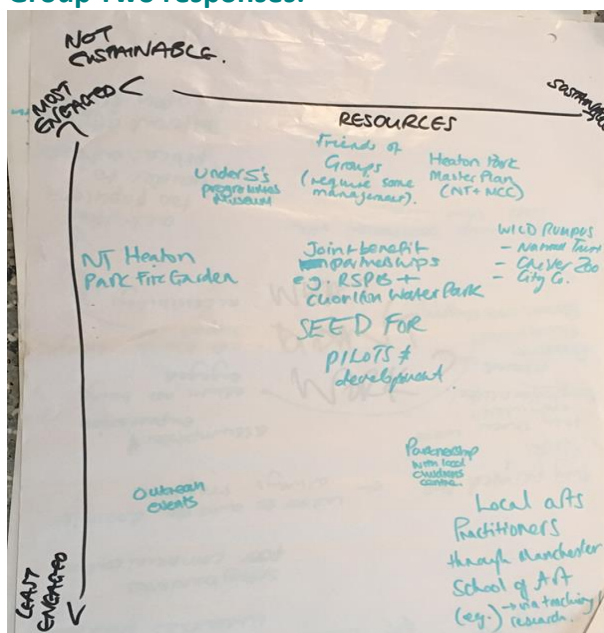 Group Two responses:
NOT
SUSTAINABLE.
MOST
ENGAGED
SUSTAINABLE
RESOURCES
Under 5's
progrmmes
Museum
Friends of
Groups
(require some
management).
Heaton Park
Master Plan
(NT + MCC)
NT Heaton
Park Fire Garden
Joint benefit
partnerships
e.g. RSPB +
Chorlton Water Park
WILD RUMPUS
- National Trust
- Chester Zoo
- City C.
SEED FOR
PILOTS &
development
Partnership
with local
childrens
centre.
Outreach
events
Local arts
Practitioners
through Manchester
School of Art
(eg.) → via teaching
research.
LEAST
ENGAGED